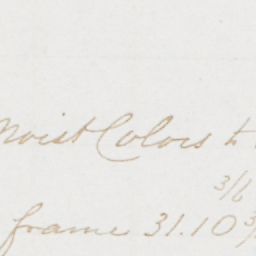 Moist Colors to
3/6
frame 31.10 3/